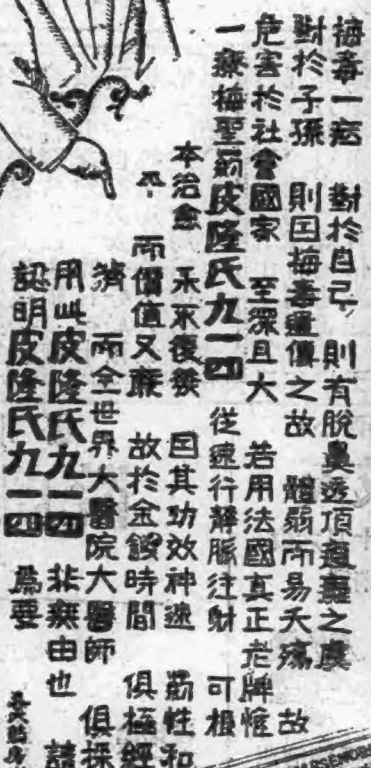 梅毒一症 對於自己 則有脫鼻透頂之虞
對於子孫 則因梅毒遺傳之故 體弱而易夭殤 故
危害於社會國家 至深且大 若用法國真正老牌惟
一療梅聖葯皮隆氏九一四 從速行靜脈注射 可根
本治愈 永不復發 因其功效神速 葯性和
平 而價值又廉 故於金錢時間 俱極經
濟 而全世界大醫院大醫師 俱採
用此皮隆氏九一四 非無由也 請
認明皮隆氏九一四 爲要